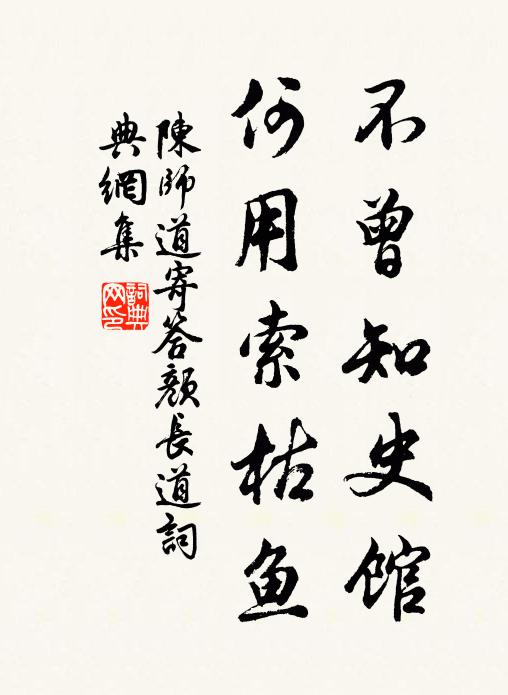 不曾知史館
何用索枯鱼
陳師道寄答顏長道詞
典網集
詞典
网印